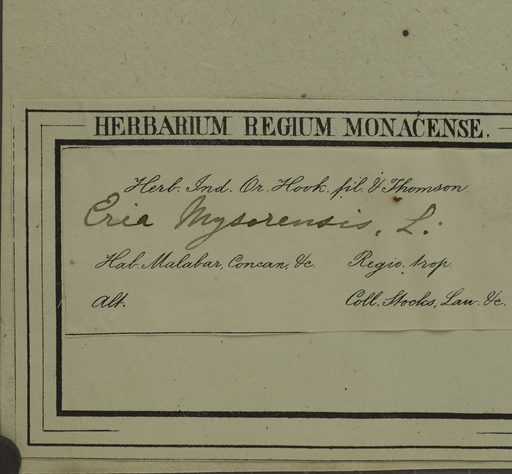 HERBARIUM REGIUM MONACENSE.
Herb. Ind. Or. Hook. fil. & Thomson.
Eria Mysorensis, L.
Hab. Malabar, Concan, &c. Regio. trop.
Alt. Coll. Stocks, Law. &c.